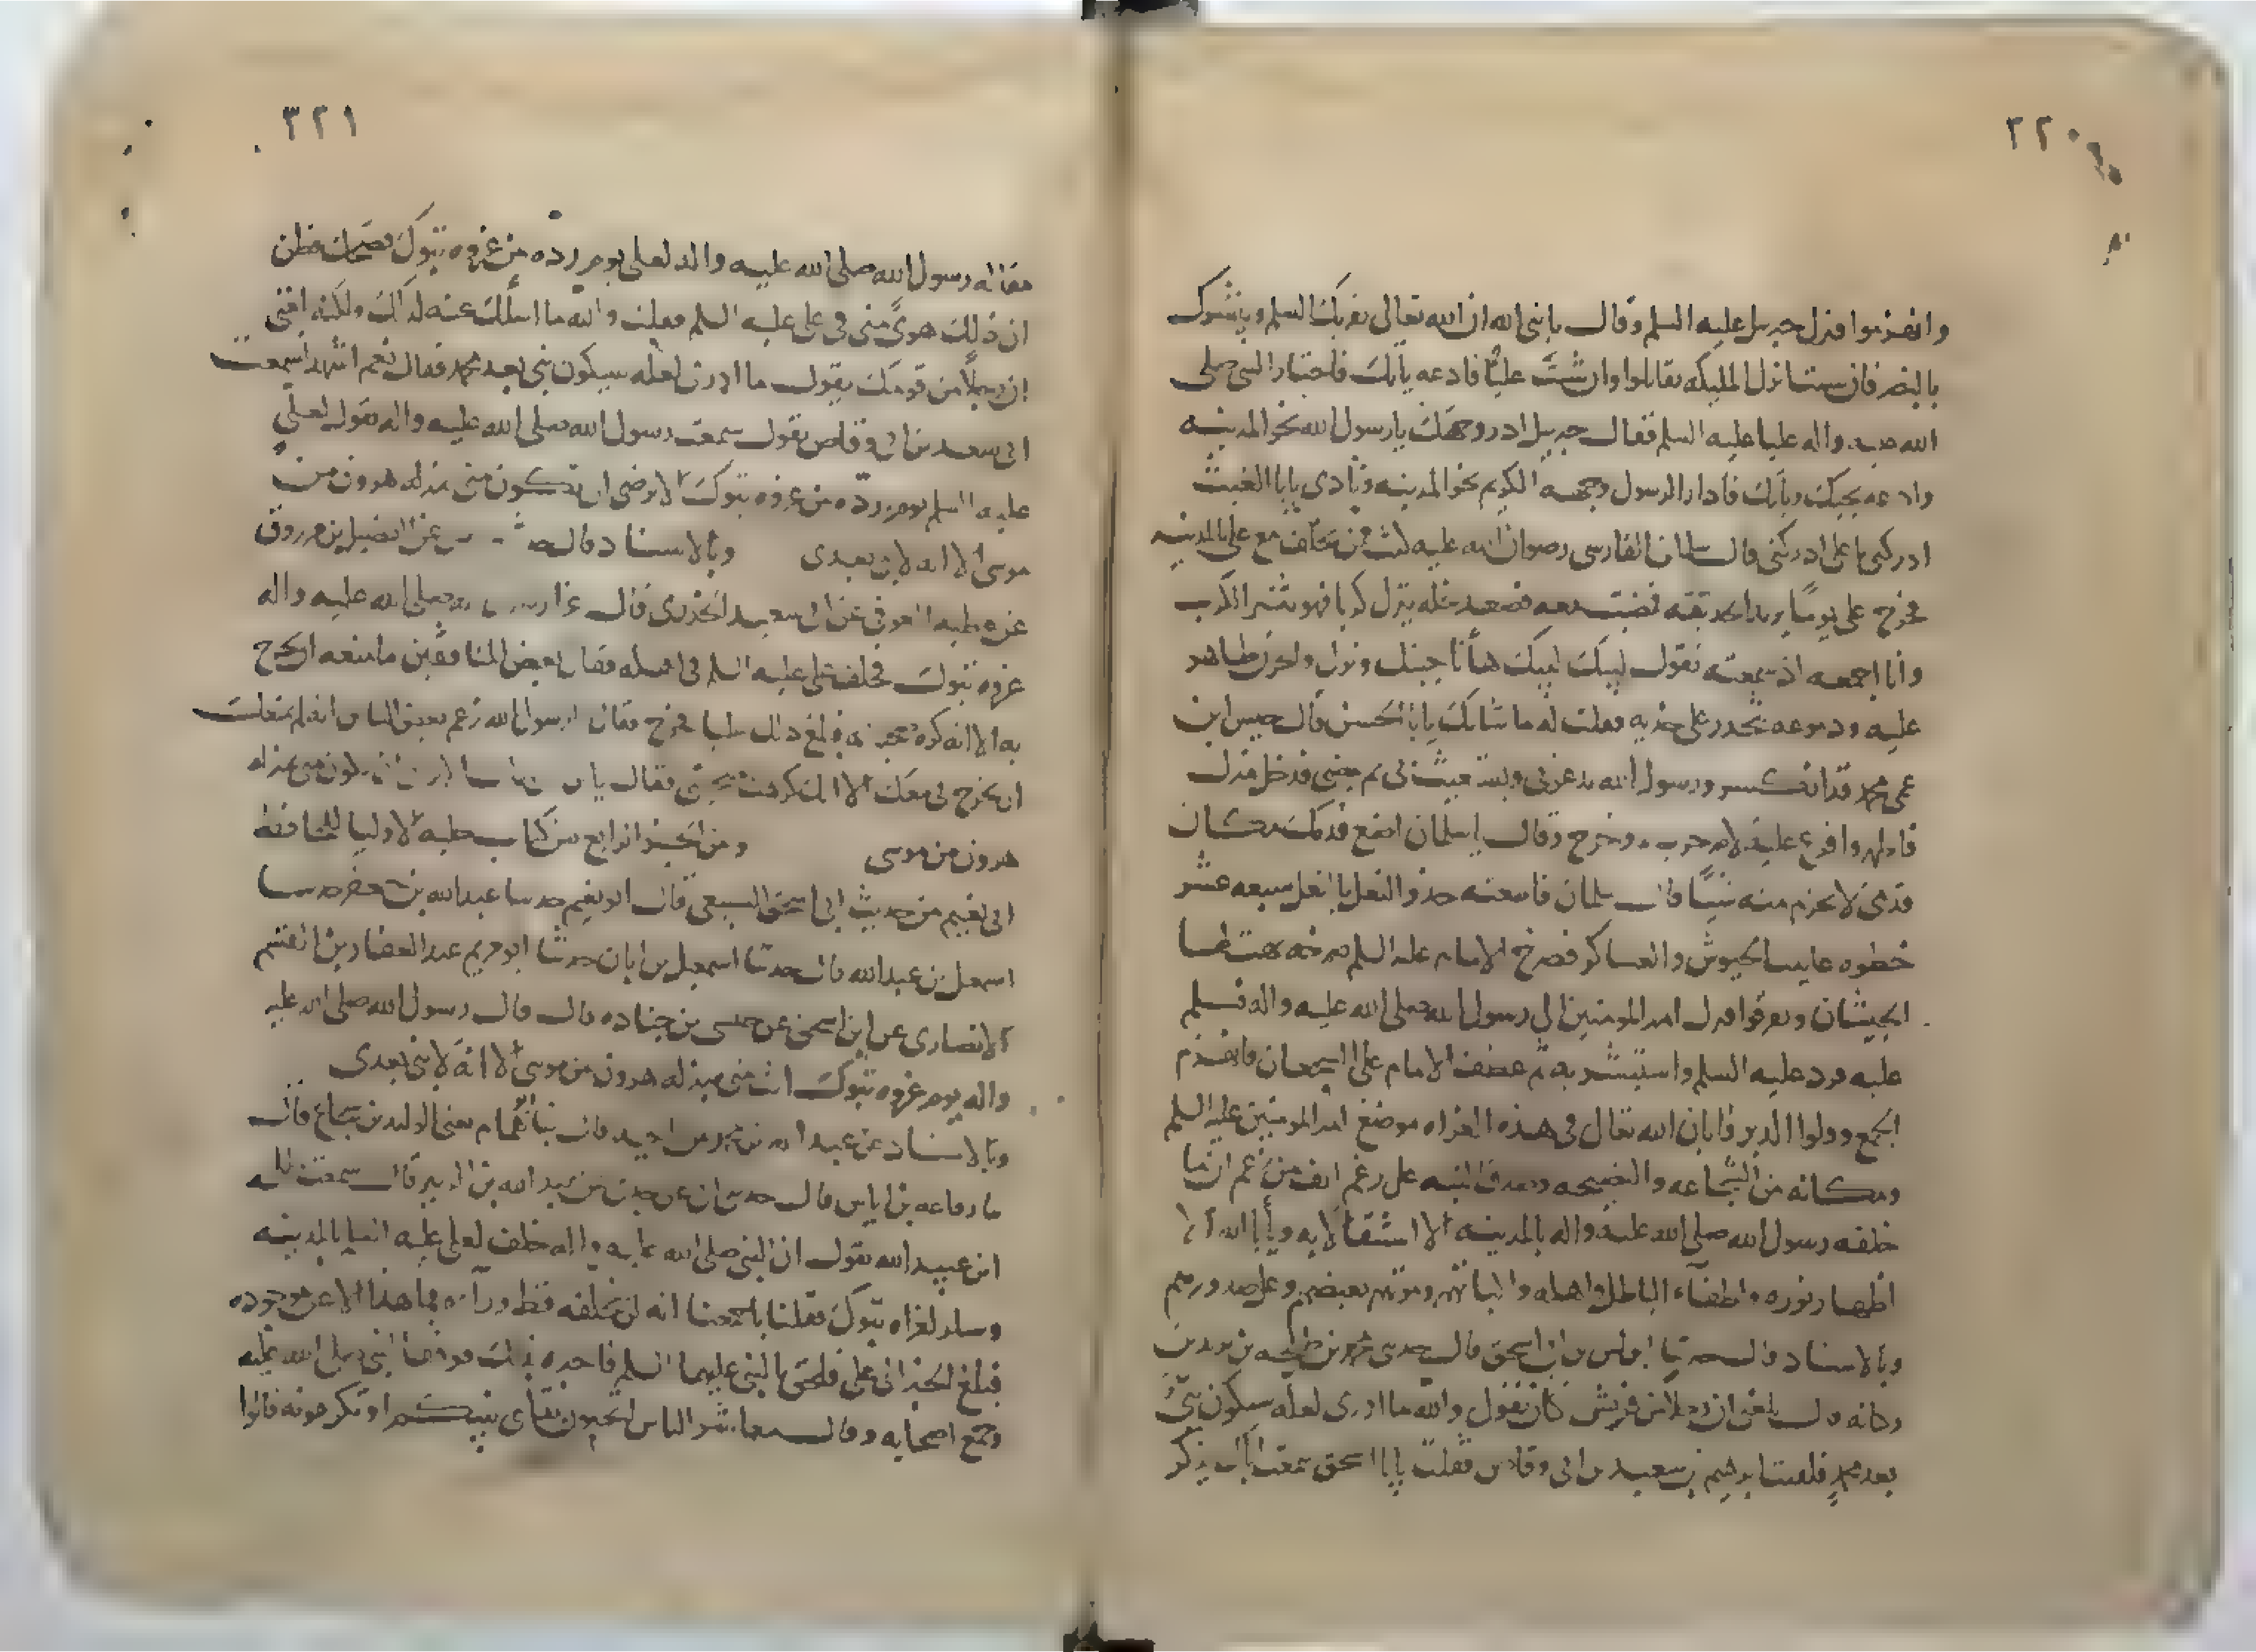 ٣٢٠
وانهزموا فنزل جبريل عليه السلم وقال يا نبي الله ان الله تعالى يقريك السلم ويبشرك
بالنصر فان شئت انزل المليكه يقاتلوا وان شئت عليًا فادعه ياتك فاختار النبي صلى
الله عليه واله عليا عليه السلم فقال جبريل ادر وجهك يا رسول الله نحو المدينه
وادعه يجيك وياتك فادار الرسول وجهه الكريم نحو المدينه ونادى يابا الغيث
ادركني يا على ادركني قال سلمان الفارسى رضوان الله عليه كنت فمن تخلف مع على بالمدينه
فخرج على يومًا يريد الحديقه فمضيت معه فصعد نخله ينزل كربا فهو ينثر الكرب
وانا اجمعه اذ سمعته يقول لبيك لبيك هاانا جيتك ونزل والحزن ظاهر
عليه ودموعه تنحدر على خديه فقلت له ما شانك يابا الحسن قال جيس ابن
عمى محمد قد انكسر ورسول الله يدعونى ويستغيث بى ثم مضى فدخل منزل
فاطمه وافرغ عليه لامه حربه وخرج وقال يا سلمان اضع قدمك مكان
قدمى لا تخرم منه شيًا قال سلمان فاتبعته حذو النعل بالنعل سبعه عشر
خطوه عاينت الجيوش والعساكر فصرخ الامام عليه السلم صرخه هت لها
الجيشان وتفرقوا فنزل امير المومنين الى رسول الله صلى الله عليه واله فسلم
عليه فرد عليه السلم واستبشر به ثم عطف الامام على الشجعان فانهزم
الجمع وولوا الدبر فابان الله تعالى فى هذه الغزاه موضع امير المومنين عليه السلم
ومكانه من الشجاعه والنصيحه وصدق النيه على رغم انف من زعم انما
خلفه رسول الله صلى الله عليه واله بالمدينه الا استثقالا به ويابا الله الا
اظهار نوره واطفاء الباطل واهله
وبالاسناد قال حدثنا يونس بن ابى اسحق قال حدثنى محمد بن طلحه بن يزيد بن
ركانه قال بلغنى ان رجلا من قريش كان يقول والله ما ادرى لعله سيكون نبىٌ
بعد محمدٍ فلقيت ابرهيم بن سعيد بن ابى وقاص فقلت يابا اسحق سمعت اباك يذكر
٣٢١
مقاله رسول الله صلى الله عليه واله لعلى يوم رده من غزوه تبوك فضحك فظن
ان ذلك هوىً منى فى على عليه السلم فقلت والله ما اسئلك عنه لذلك ولكنه افتى
ان رجلًا من قومك يقول ما ادرى لعله سيكون نبى بعد محمد فقال نعم اشهد لسمعت
ابى سعد بن ابى وقاص يقول سمعت رسول الله صلى الله عليه واله يقول لعلى
عليه السلم يوم رده من غزوه تبوك الا ترضى ان تكون منى بمنزله هرون من
موسى الا انه لا نبى بعدى وبالاسناد قال عن الفضيل بن مرزوق
عن عطيه العوفى عن ابى سعيد الخدرى قال غزا رسول الله صلى الله عليه واله
غزوه تبوك فخلف على عليه السلم فى اهله فقال بعض المنافقين ما منعه ان يخرج
به الا انه كره صحبته فبلغ ذلك عليا فخرج فقال يرسول الله زعم بعض الناس انك لم يمنعك
ان تخرج بى معك الا انك كرهت صحبتى فقال ان تكون منى بمنزله
هرون من موسى ومن الجزو الرابع من كتاب حليه الاوليا للحافظ
ابى نعيم من حديث ابى اسحق السبيعى قال ابو نعيم حدثنا عبد الله بن جعفر حدثنا
اسمعيل بن عبد الله قال حدثنا اسمعيل بن ابان حدثنا ابو مريم عبد الغفار بن القسم
الانصارى عن ابن اسحق عن حبشى بن جناده قال قال رسول الله صلى الله عليه
واله يوم غزوه تبوك انت منى بمنزله هرون من موسى الا انه لا نبى بعدى
وبالاسناد عن عبد الله بن قال نبا ابو همام يعنى الوليد بن شجاع قال
نا رفاعه بن اياس قال سمعت
ابن عبيد الله يقول ان النبى صلى الله عليه واله خلف لعلى عليه بالمدينه
وسار لغزاه تبوك فقلنا باجمعنا انه لن يخلفه قط ورآه بها هذا الا عن موجده
فبلغ الخبر الى على فلحق بالنبى عليهما السلم فاخبره بذلك فوافا النبى صلى الله عليه
وجمع اصحابه وقال معاشر الناس اتحبون بقاى بينكم او تكرهونه قالوا